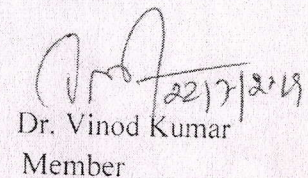 22/7/2019
Dr. Vinod Kumar
Member